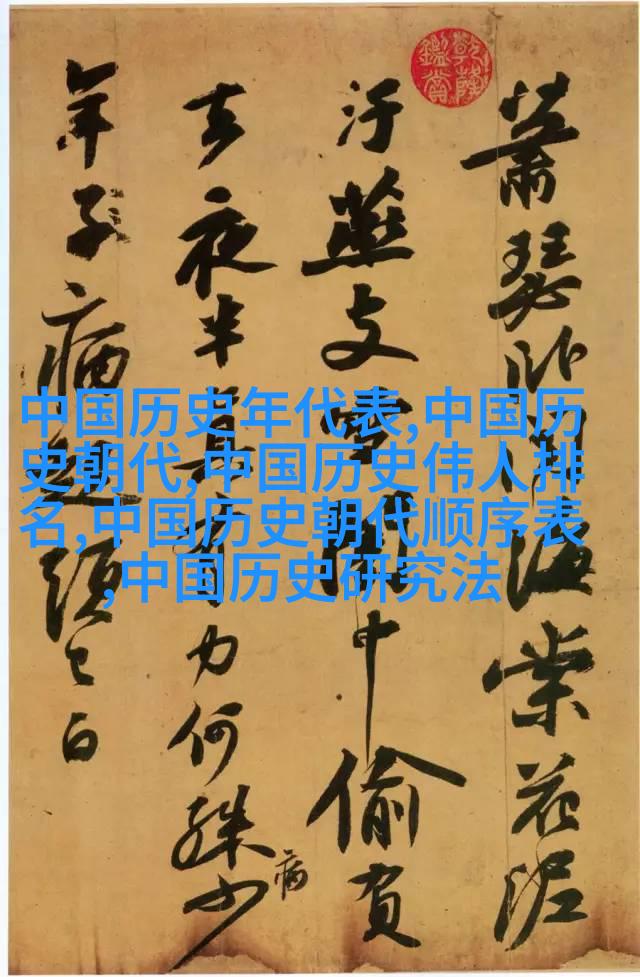 乾隆鑑賞
蕭瑟卧聞海棠花泥
汙燕支雪闇中偷負
去夜半真有力何殊少
病
年子病起頭已白
中国历史年代表,中国历
史朝代,中国历史伟人排
名,中国历史朝代顺序表
,中国历史研究法